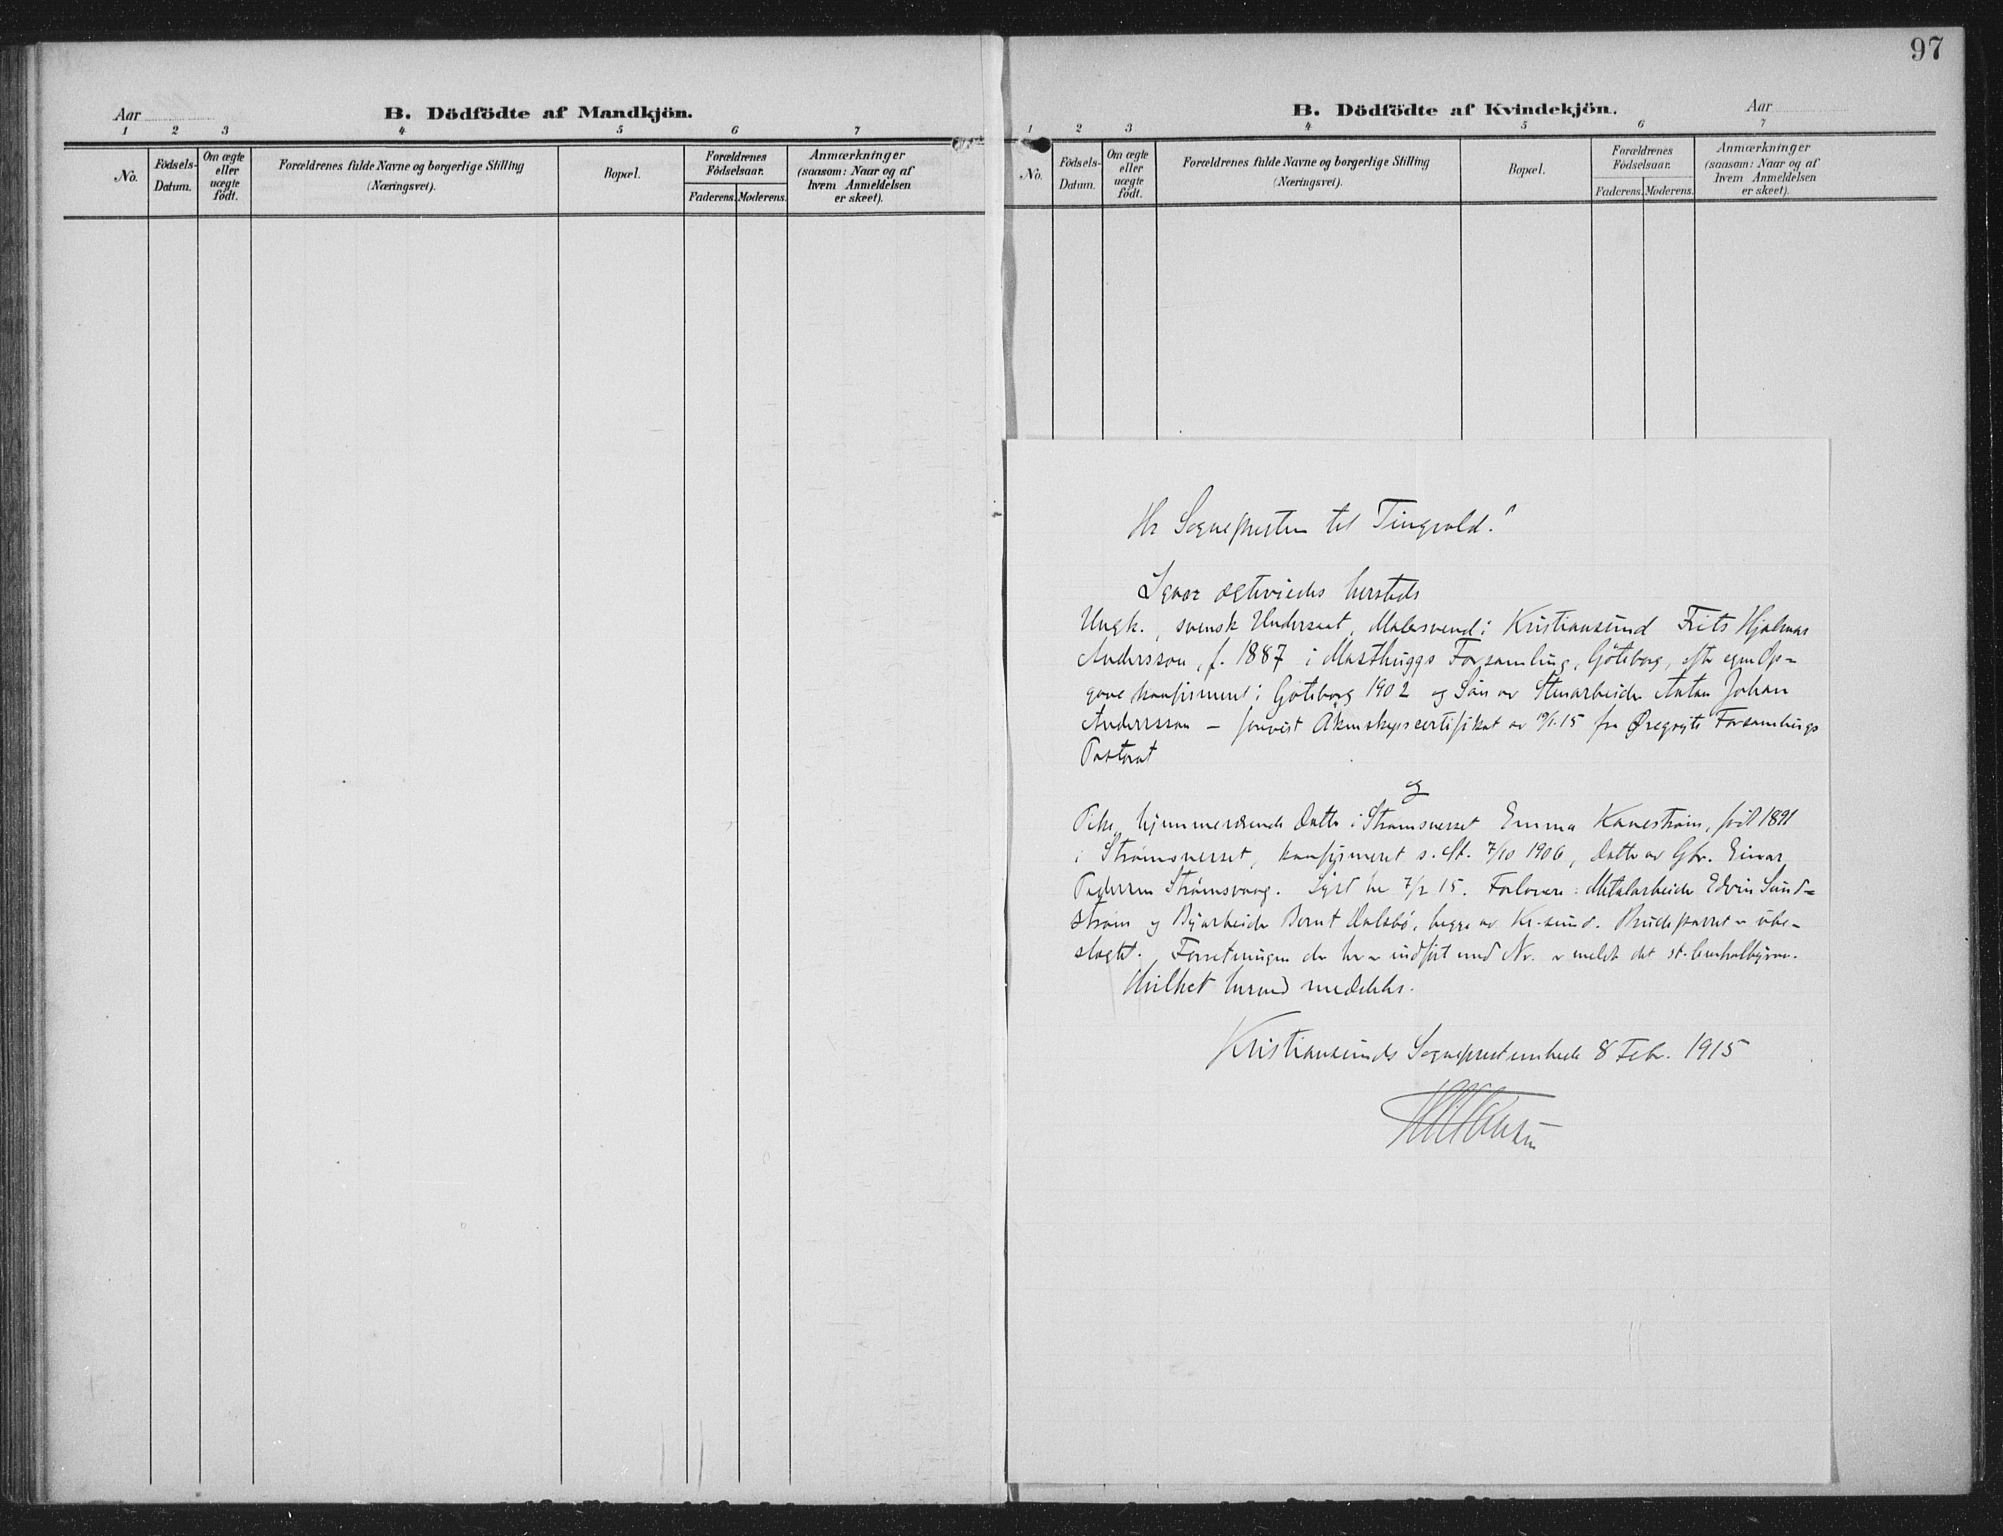 97
Aar
B. Dödfödte af Mandkjön.
1 2 3 4 5 6 7
No.
Födsels-
Datum.
Om ægte
eller
uægte
födt.
Forældrenes fulde Navne og borgerlige Stilling
(Næringsvei).
Bopæl.
Forældrenes
Födselsaar.
Faderens. Moderens.
Anmærkninger
(saasom: Naar og af
hvem Anmeldelsen
er skeet).
B. Dödfödte af Kvindekjön.
Aar
1 2 3 4 5 6 7
No.
Födsels-
Datum.
Om ægte
eller
uægte
födt.
Forældrenes fulde Navne og borgerlige Stilling
(Næringsvei).
Bopæl.
Forældrenes
Födselsaar.
Faderens. Moderens.
Anmærkninger
(saasom: Naar og af
hvem Anmeldelsen
er skeet).
Hr Sognepresten til Tingvold!
Igaar ægteviedes hersteds
Ungk., svensk Undersaat, Malersvend i Kristiansund Frits Hjalmar
Andersson, f. 1887 i Masthuggs Forsamling, Göteborg, efter egen Op-
gave konfirmeret i Göteborg 1902 og Søn av Stenarbeider Anton Johan
Andersson – forevist Äkenskapscertifikat av 19/1.15 fra Øregryte Forsamlings
Pastorat
og
Pike, hjemmeværende Datter i Strømsnesset Emma Kanestrøm, født 1891
i Strømsnesset, konfirmeret s. st. 7/10 1906, Datter av Gbr. Einar
Pedersen Strømsvaag. Lyst her 7/2 15. Forlovere: Metalarbeider Edvin Sund-
strøm og Byarbeider Bernt Dalsbø, begge av Kr.sund. Brudeparret er ube-
slegtet. Forretningen der her er indført med Nr. er meldt det st. Centralbyraa.
Hvilket herved meddeles.
Kristiansunds Sogneprestembede 8 Febr. 1915